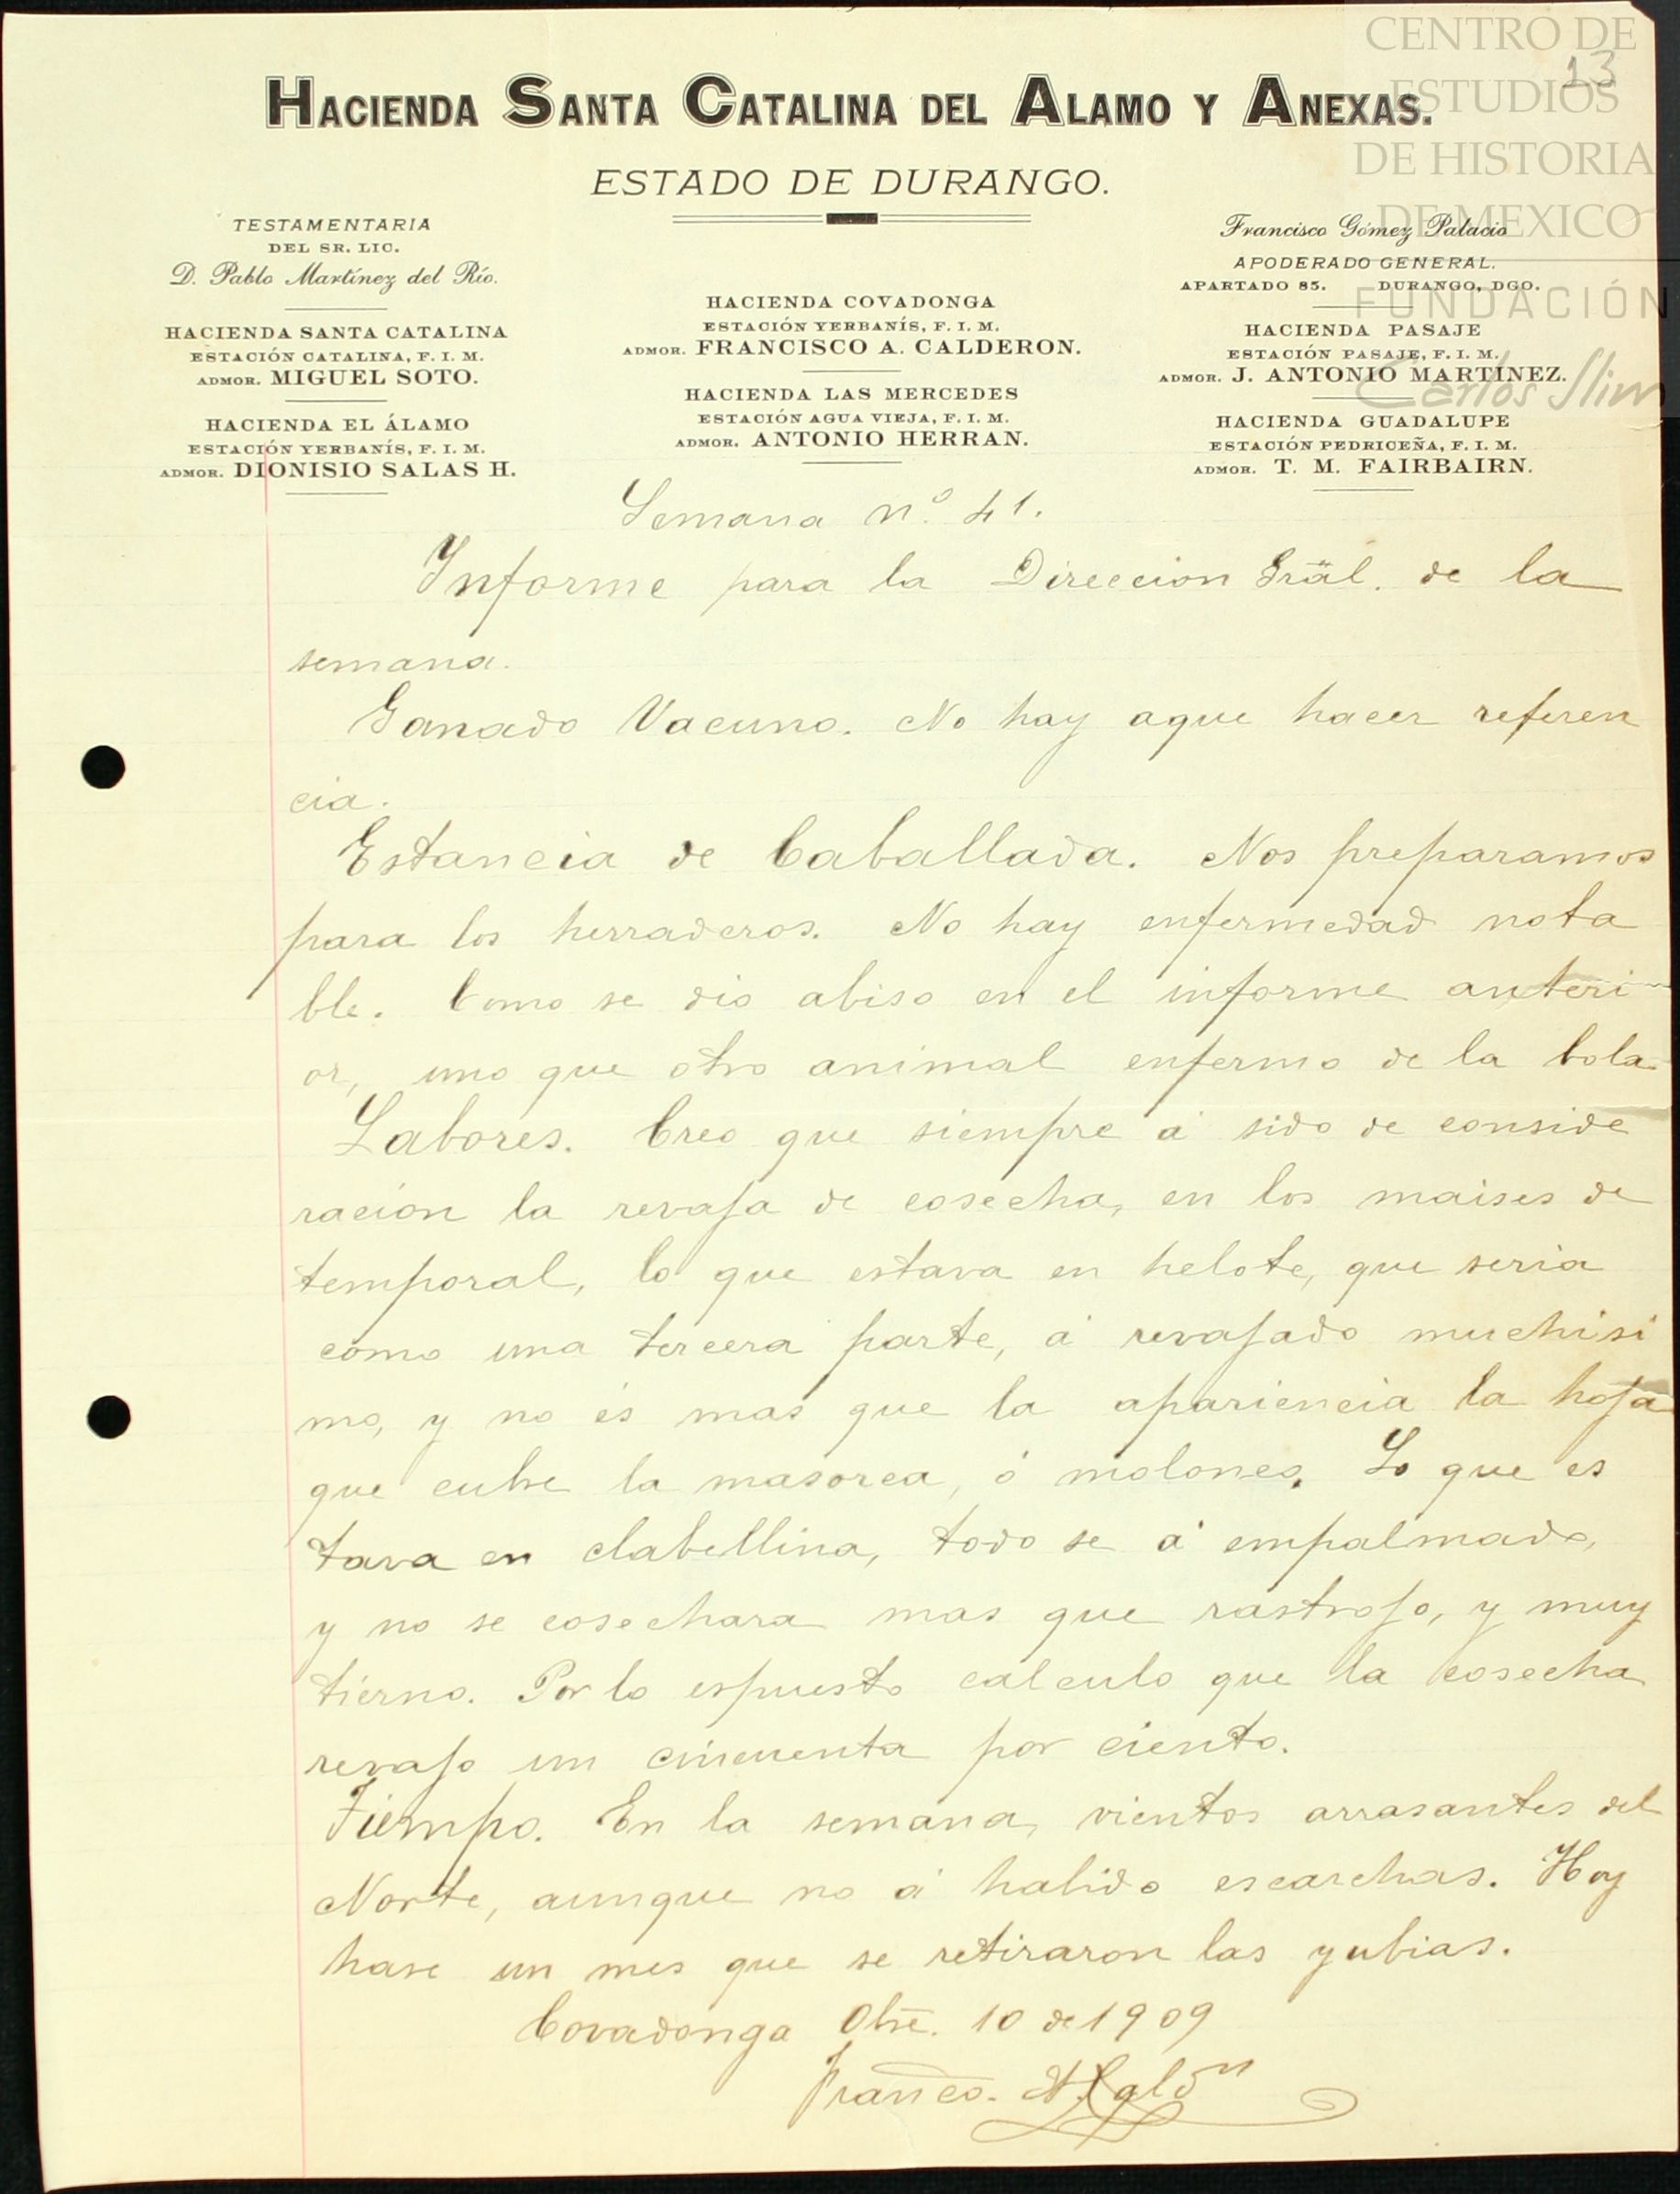 CENTRO DE
ESTUDIOS
DE HISTORIA
DE MEXICO
FUNDACIÓN
Carlos Slim
13
HACIENDA SANTA CATALINA DEL ALAMO Y ANEXAS.
ESTADO DE DURANGO.
TESTAMENTARIA
DEL SR. LIC.
D. Pablo Martínez del Río.
HACIENDA SANTA CATALINA
ESTACIÓN CATALINA, F. I. M.
ADMOR. MIGUEL SOTO.
HACIENDA EL ÁLAMO
ESTACIÓN YERBANÍS, F. I. M.
ADMOR. DIONISIO SALAS H.
HACIENDA COVADONGA
ESTACIÓN YERBANÍS, F. I. M.
ADMOR. FRANCISCO A. CALDERON.
HACIENDA LAS MERCEDES
ESTACIÓN AGUA VIEJA, F. I. M.
ADMOR. ANTONIO HERRAN.
Francisco Gómez Palacio
APODERADO GENERAL.
APARTADO 85. DURANGO, DGO.
HACIENDA PASAJE
ESTACIÓN PASAJE, F. I. M.
ADMOR. J. ANTONIO MARTINEZ.
HACIENDA GUADALUPE
ESTACIÓN PEDRICEÑA, F. I. M.
ADMOR. T. M. FAIRBAIRN.
Semana nº. 41.
Informe para la Direccion Gräl. de la
semana.
Ganado Vacuno. No hay aque hacer referen
cia.
Estancia de Caballada. Nos preparamos
para los herraderos. No hay enfermedad nota
ble. Como se dio abiso en el informe anteri
or, uno que otro animal enfermo de la bola.
Labores. Creo que siempre á sido de conside
ración la revaja de cosecha, en los maises de
temporal, lo que estava en helote, que seria
como una tercera parte, á revajado muchisi
mo, y no és mas que la apariencia la hoja
que cubre la masorca, ó molones. Lo que es
tava en clabellina, todo se á empalmado,
y no se cosechara mas que rastrojo, y muy
tierno. Por lo espuesto calculo que la cosecha
revajo un cincuenta por ciento.
Tiempo. En la semana, vientos arrasantes del
Norte, aunque no á habido escarchas. Hoy
hase un mes que se retiraron las yubias.
Covadonga Obre. 10 de 1909
Franco. A. Calðn